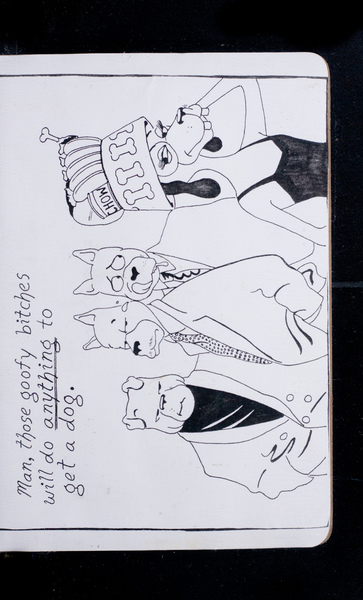 CHOW
Man, those goofy bitches
will do anything to
get a dog.